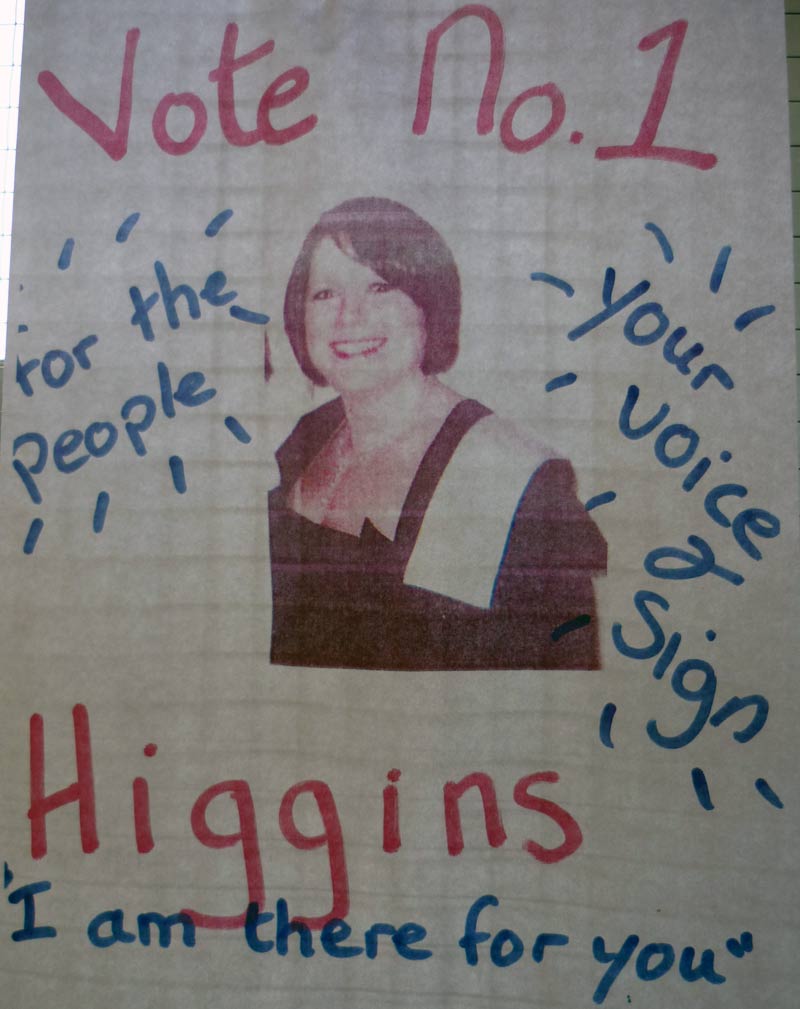 Vote No.1
for the
people
your
voice
&
sign
Higgins
"I am there for you"